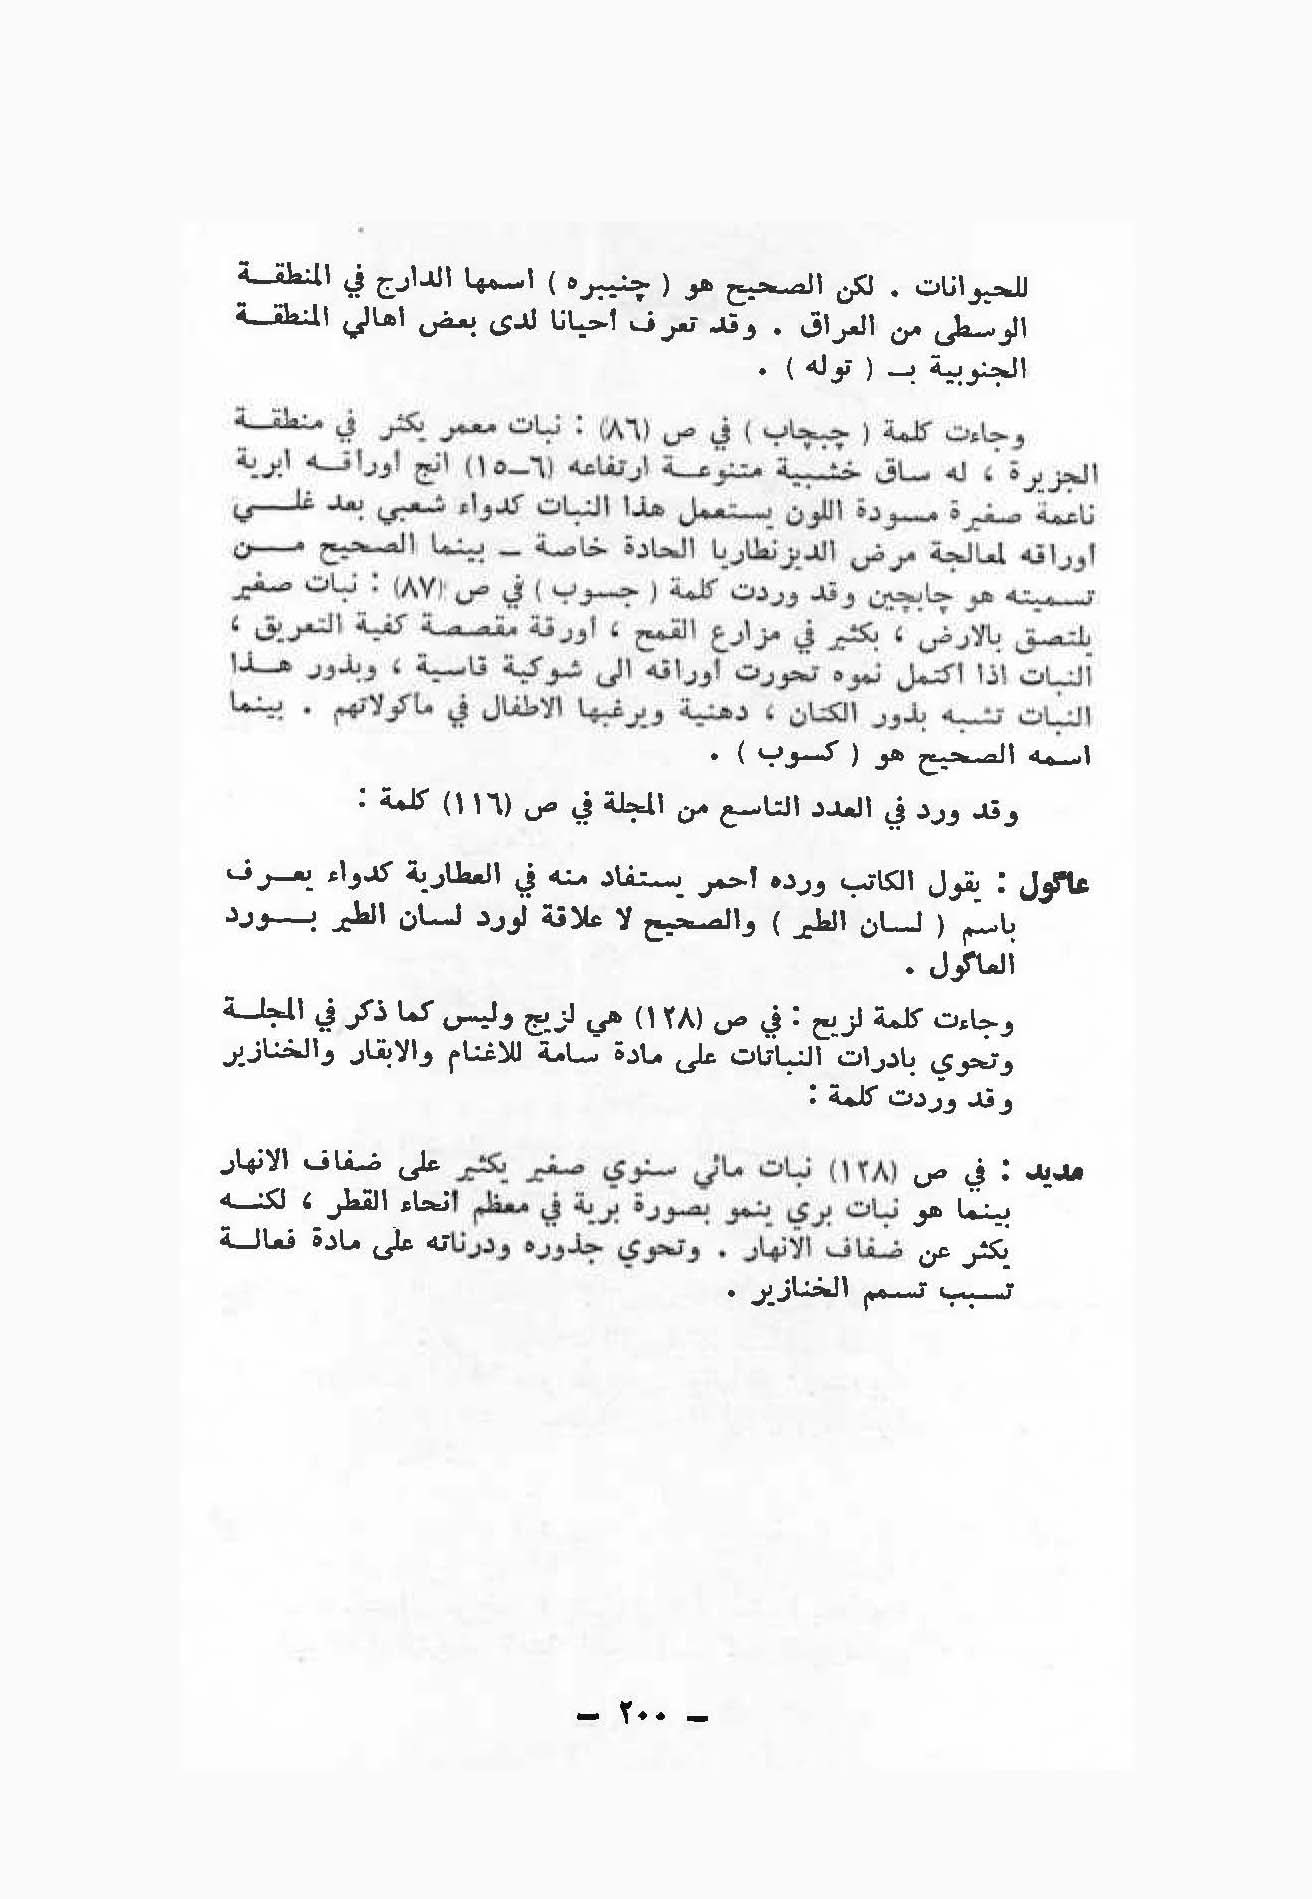 للحيوانات . لكن الصحيح هو ( چنيبره ) اسمها الدارج في المنطقــة
الوسطى من العراق . وقد تعرف أحيانا لدى بعض أهالي المنطقــة
الجنوبية بـ ( توله ) .
وجاءت كلمة ( چبچاب ) في ص (٨٦) : نبات معمر يكثر في منطقــة
الجزيرة ، له ساق خشبية متنوعــة ارتفاعه (٦–١٥) انج أوراقــه ابرية
ناعمة صغيرة مسودة اللون يستعمل هذا النبات كدواء شعبي بعد غلــي
أوراقه لمعالجة مرض الديزنطاريا الحادة خاصة – بينما الصحيح مــن
تسميته هو چابچين وقد وردت كلمة ( جسوب ) في ص (٨٧) : نبات صغير
يلتصق بالارض ، بكثير في مزارع القمح ، أورقة مقصصة كفية التعريق ،
النبات اذا اكتمل نموه تحورت أوراقه الى شوكية قاسية ، وبذور هــذا
النبات تشبه بذور الكتان ، دهنية ويرغبها الاطفال في مأكولاتهم . بينما
اسمه الصحيح هو ( كسوب ) .
وقد ورد في العدد التاسع من المجلة في ص (١١٦) كلمة :
عاگول : يقول الكاتب ورده أحمر يستفاد منه في العطارية كدواء يعــرف
باسم ( لسان الطير ) والصحيح لا علاقة لورد لسان الطير بــورد
العاگول .
وجاءت كلمة لزيح : في ص (١٢٨) هي لزيج وليس كما ذكر في المجلــة
وتحوي بادرات النباتات على مادة سامة للاغنام والابقار والخنازير
وقد وردت كلمة :
مديد : في ص (١٢٨) نبات مائي سنوي صغير يكثير على ضفاف الانهار
بينما هو نبات بري ينمو بصورة برية في معظم أنحاء القطر ، لكنــه
يكثر عن ضفاف الانهار . وتحوي جذوره ودرناته على مادة فعالــة
تسبب تسمم الخنازير .
– ٢٠٠ –